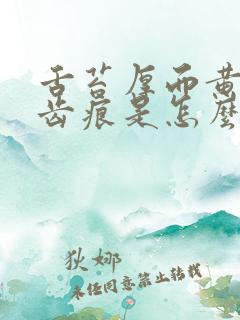 舌苔厚而黄
齿痕是怎么
狄娜
未经同意禁止转载